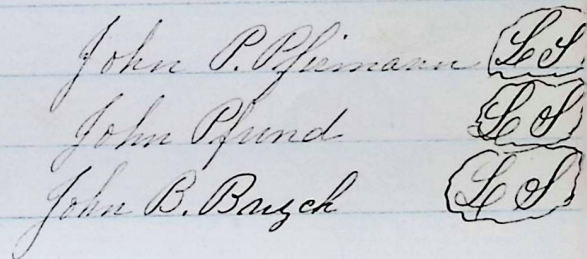 John P. Pfiemann L S
John Pfund L S
John B. Bruych L S